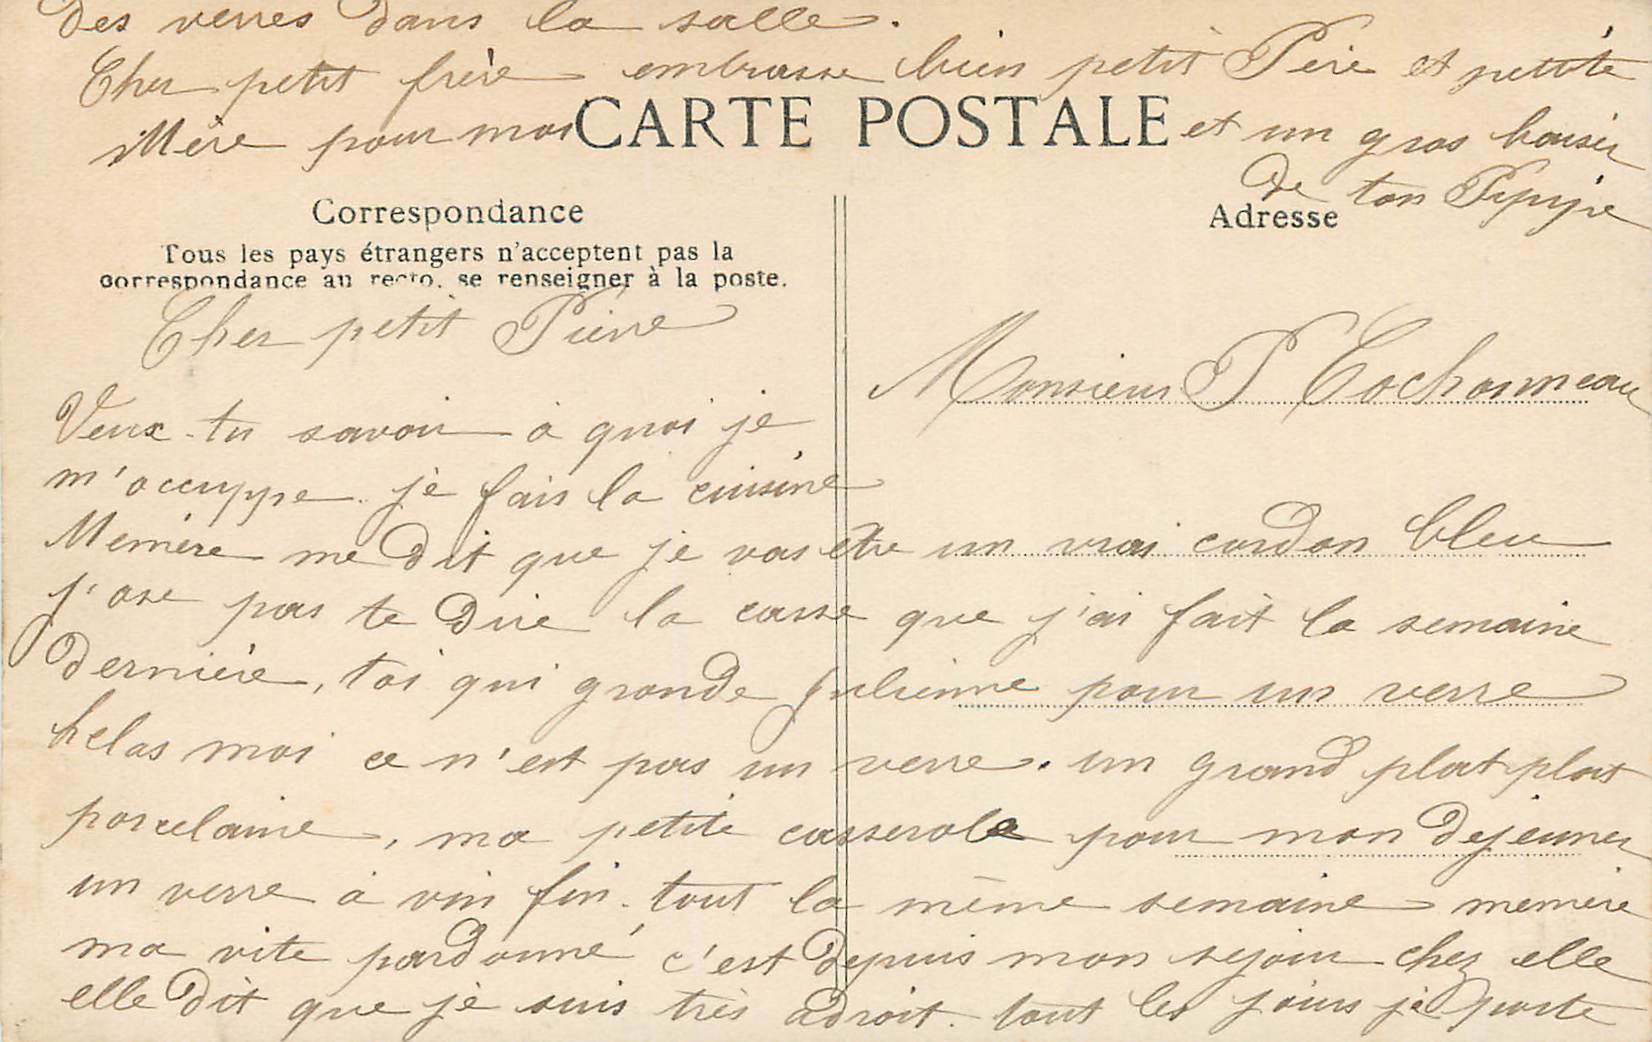 des verres dans la salle.
Cher petit frère embrasse bien petit Père et petite
Mère pour moi et un gros baiser
de ton Pipije
CARTE POSTALE
Correspondance
Tous les pays étrangers n'acceptent pas la
correspondance au recto, se renseigner à la poste.
Adresse
Cher petit Pierre
Monsieur P Cochonneau
Veux-tu savoir a quoi je
m'occuppe. je fais la cuisine
Memère me dit que je vas etre un vrai cordon bleu
j'ose pas te dire la casse que j'ai fait la semaine
dernière, toi qui gronde Julienne pour un verre
helas moi ce n'est pas un verre. un grand plat plat
porcelaine, ma petite casserole pour mon dejeuner
un verre a vin fin. tout la même semaine memère
ma vite pardonné c'est depuis mon sejour chez elle
elle dit que je suis très adroit. tout les jours je porte